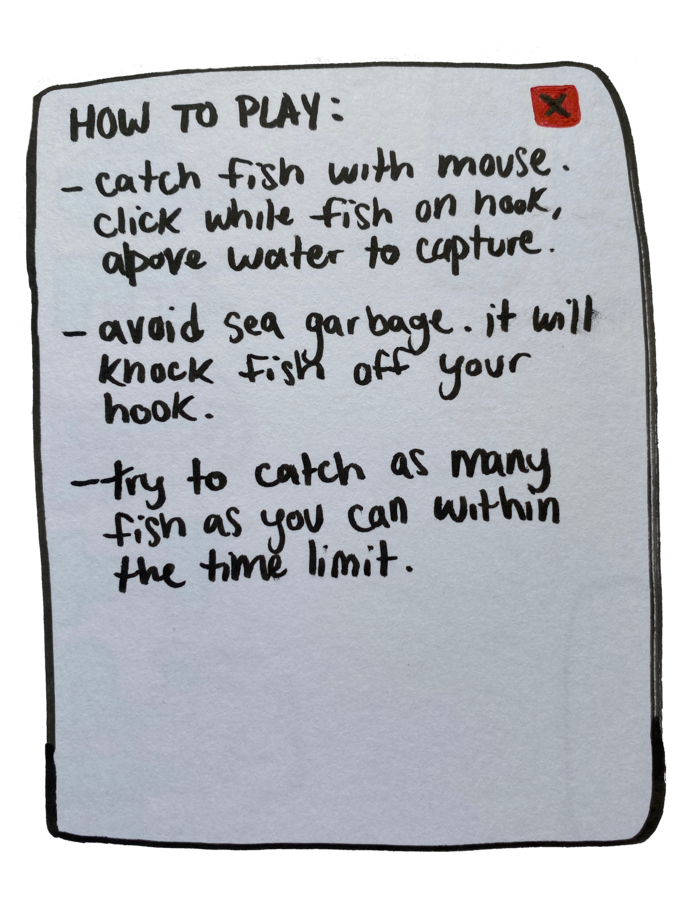 HOW TO PLAY:
X
- catch fish with mouse.
click while fish on hook,
above water to capture.
- avoid sea garbage. it will
knock fish off your
hook.
- try to catch as many
fish as you can within
the time limit.